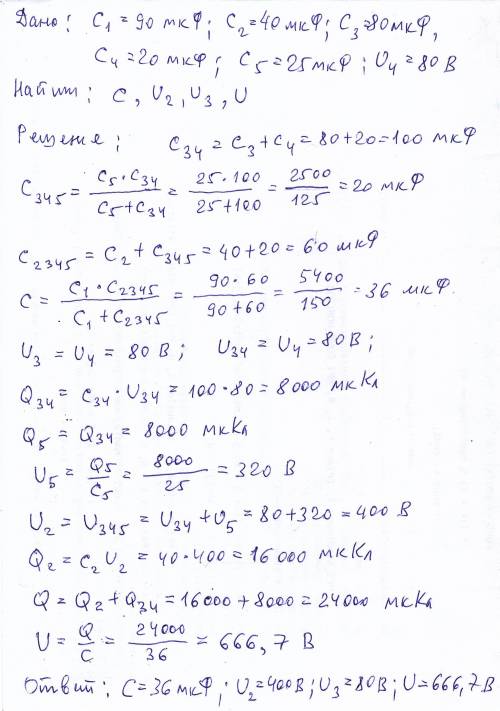 Дано: C₁=90 мкФ; C₂=40мкФ; C₃=80мкФ,
C₄=20 мкФ; C₅=25мкФ; U₄=80В
Найти: C, U₂, U₃, U
Решение: C₃₄=C₃+C₄=80+20=100 мкФ
C₃₄₅=(C₅·C₃₄)/(C₅+C₃₄)=(25·100)/(25+100)=2500/125=20 мкФ
C₂₃₄₅=C₂+C₃₄₅=40+20=60 мкФ
C=(C₁·C₂₃₄₅)/(C₁+C₂₃₄₅)=(90·60)/(90+60)=5400/150=36 мкФ.
U₃=U₄=80В; U₃₄=U₄=80В;
Q₃₄=C₃₄·U₃₄=100·80=8000 мкКл
Q₅=Q₃₄=8000 мкКл
U₅=Q₅/C₅=8000/25=320 В
U₂=U₃₄₅=U₃₄+U₅=80+320=400 В
Q₂=C₂U₂=40·400=16000 мкКл
Q=Q₂+Q₃₄=16000+8000=24000 мкКл
U=Q/C=24000/36=666,7 В
Ответ: C=36мкФ; U₂=400В; U₃=80В; U=666,7В